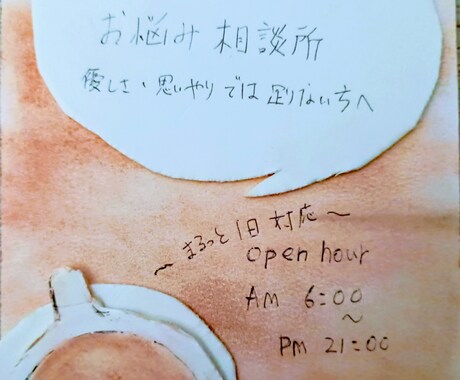 お悩み相談所
優しさ、思いやりでは足りない方へ
〜まるっと1日対応〜
open hour
AM 6:00
〜
PM 21:00